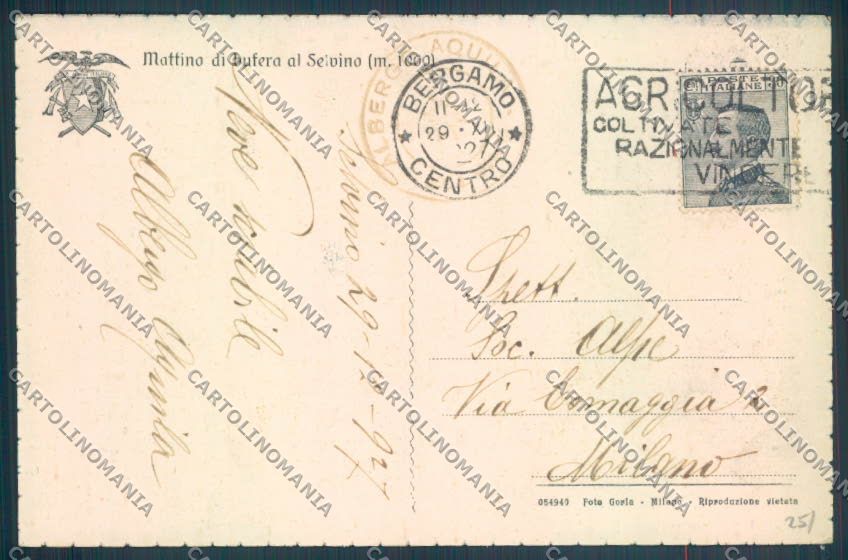 Mattino di bufera al Selvino (m. 1000)
ALBERGO AQUILA
BERGAMO
29 XII
CENTRO
POSTE
ITALIANE
AGRICOLTORI
COLTIVATE
RAZIONALMENTE
VINCERE
Neve sciabile
Albergo Aquila
Selvino 29-12-927
Spett.
Soc. Alpe
Via Comaggia 2
Milano
054940 Foto Gorla - Milano - Riproduzione vietata
25/
CARTOLINOMANIA